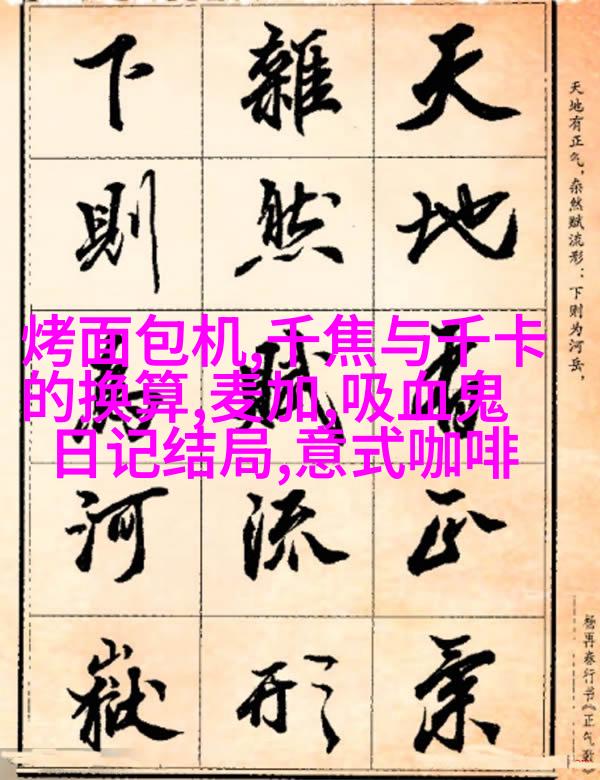 天地有正气，杂然赋流形：下则为河岳，
杨再春行书《正气歌》
天地有正氣
雜然賦流形
下則為河嶽
烤面包机,千焦与千卡
的换算,麦加,吸血鬼
日记结局,意式咖啡